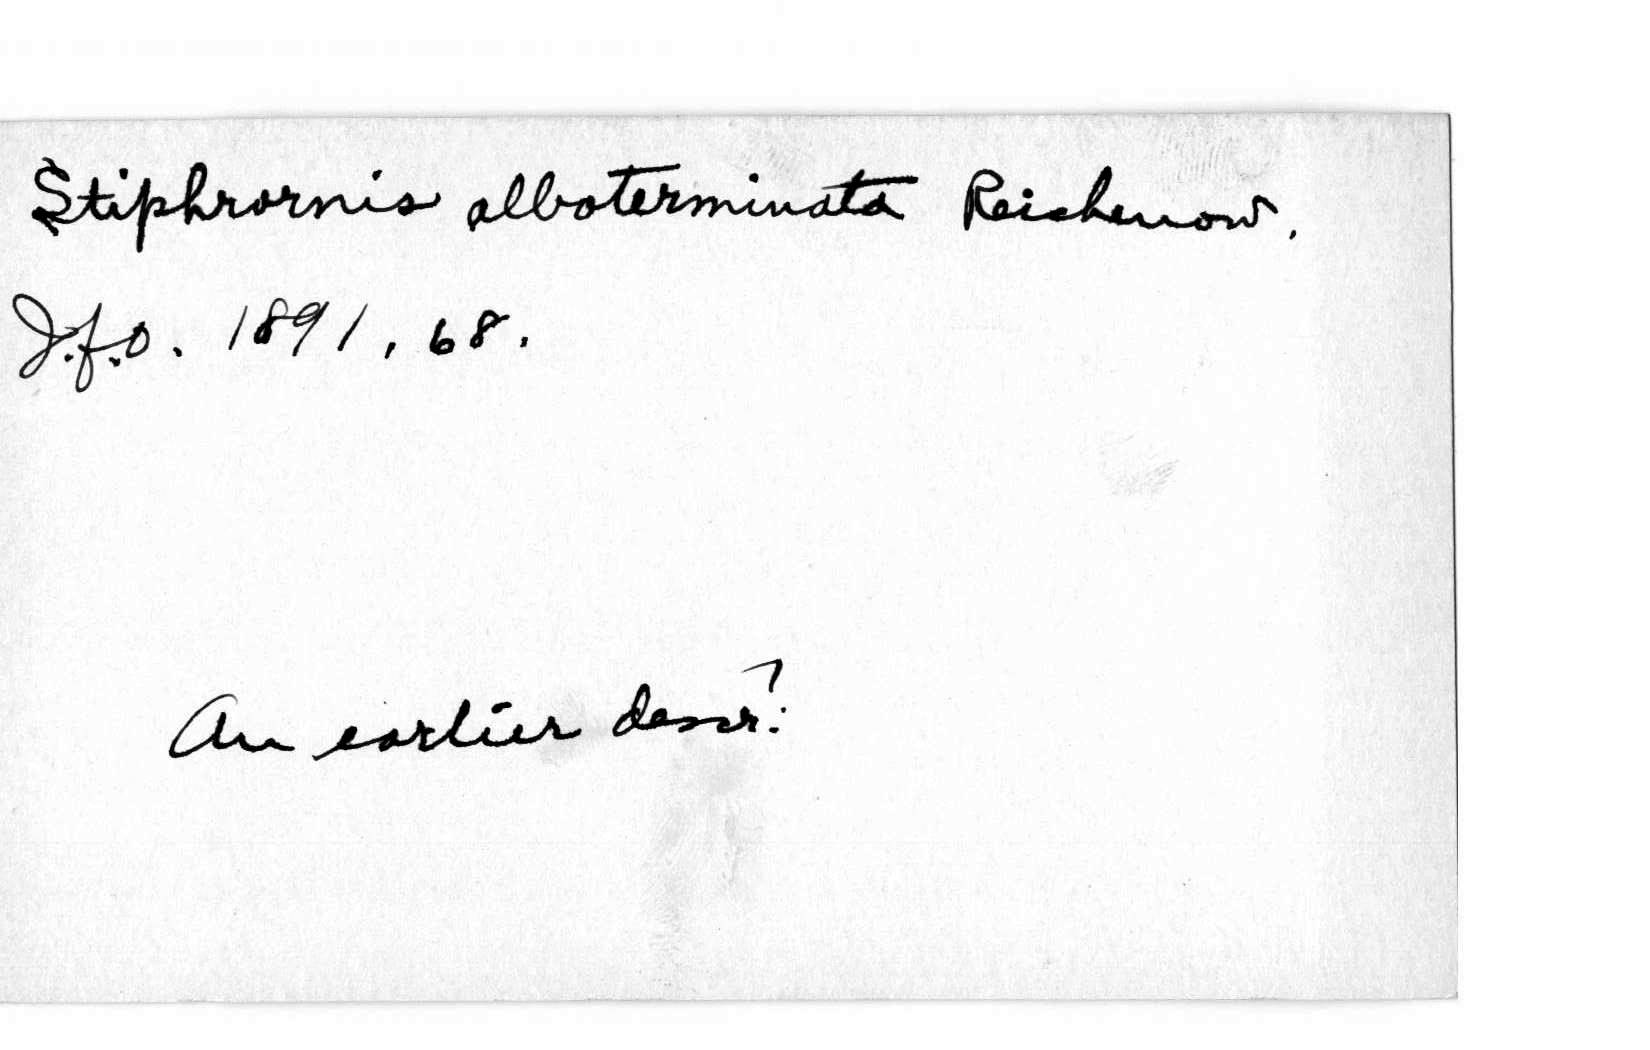 Stiphrornis alboterminata Reichenow.
J.f.O. 1891, 68.
An earlier descr.?